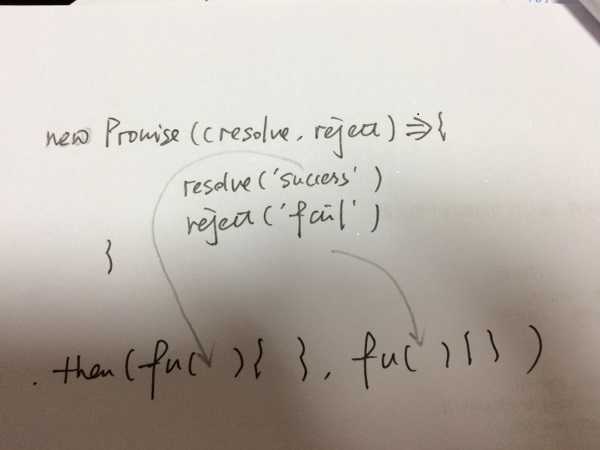 new Promise ((resolve, reject) => {
resolve('success')
reject('fail')
}
.then(fu( ){ }, fu( ){ })